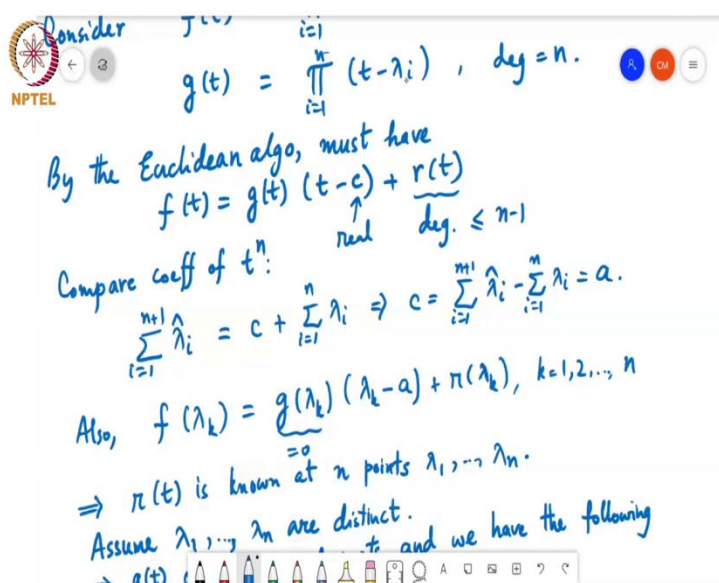 Consider
i=1
g(t) = n ∏ i=1 (t-λi) , deg = n.
NPTEL
CM
By the Euclidean algo, must have
f(t) = g(t) (t-c) + r(t)
↑ real deg. ≤ n-1
Compare coeff of tⁿ:
n+1 ∑ i=1 λ̂i = c + n ∑ i=1 λi ⇒ c = n+1 ∑ i=1 λ̂i - n ∑ i=1 λi = a.
Also, f(λk) = g(λk) (λk-a) + r(λk), k=1,2,.., n
=0
⇒ r(t) is known at n points λ1,..., λn.
Assume λ1,..., λn are distinct.
⇒ g(t) and we have the following
A